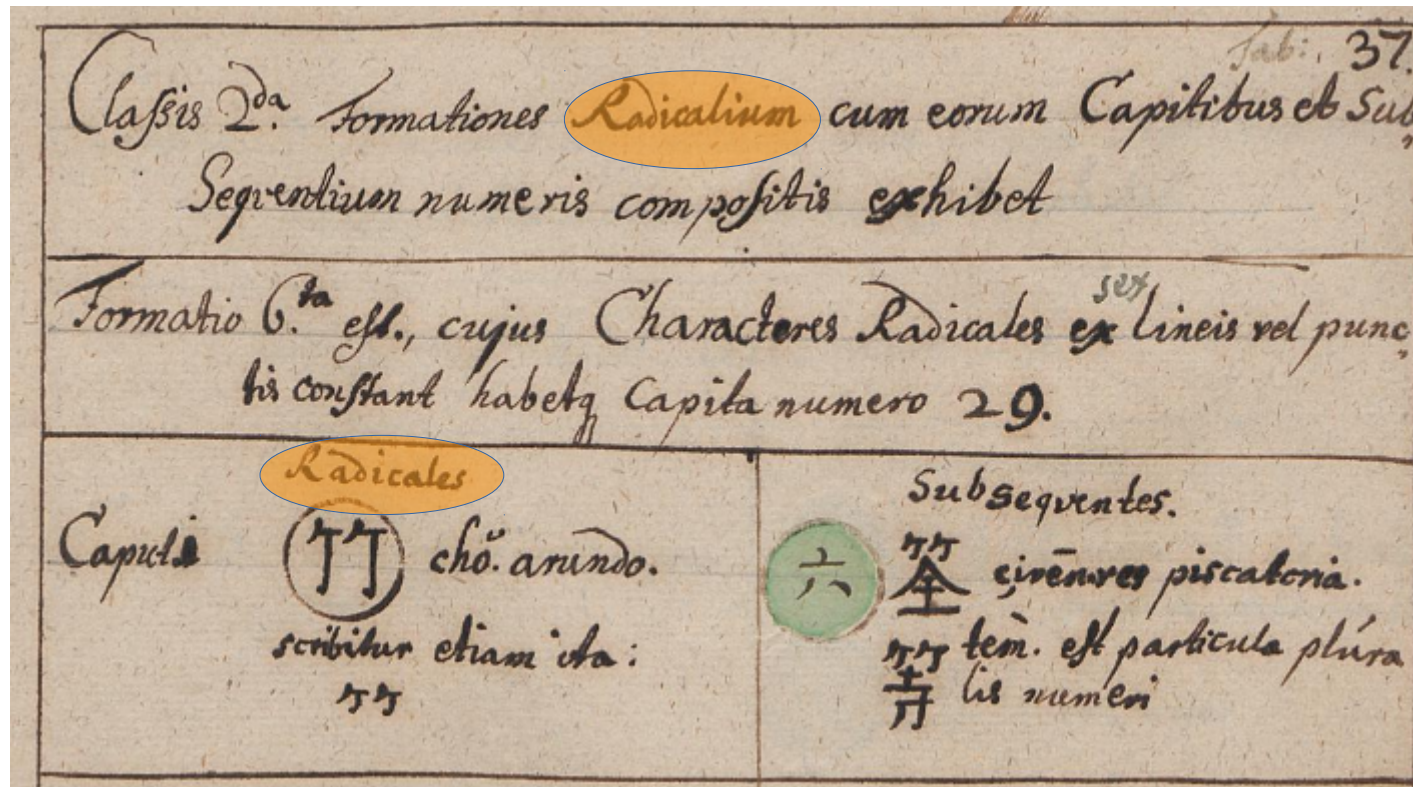 Tab: 37.
Classis 2.da Formationes Radicalium cum eorum Capitibus et Sub„
Seqventium numeris compositis exhibet
Formatio 6.ta est., cujus Characteres Radicales ex sex lineis vel punc„
tis constant habetq Capita numero 29.
Radicales
Caput 1 竹 chŏ. arundo.
scribitur etiam ita:
⺮
Subseqventes.
六 筌 çivēn. res piscatoria.
等 tem̀. est particula plúra
lis numeri